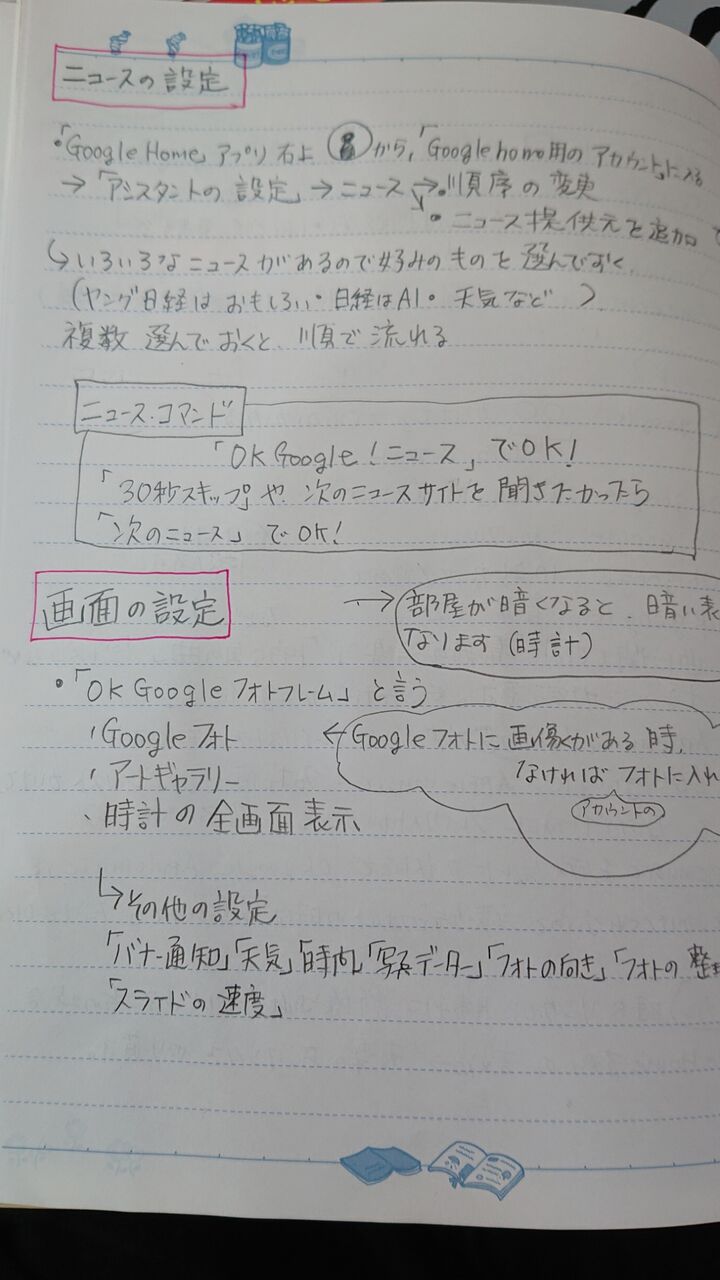 ニュースの設定
・「Google Home」アプリ右上 から,「Google home用のアカウント」に入る
→「アシスタントの設定」→ニュース→・順序の変更
・ニュース提供元を追加
↳いろいろなニュースがあるので好みのものを選んでおく.
(ヤング日経はおもしろい・日経はAI・天気など )
複数選んでおくと、順で流れる
ニュース・コマンド
「OK Google!ニュース」でOK!
「30秒スキップ」や次のニュースサイトを聞きたかったら
「次のニュース」でOK!
画面の設定
→部屋が暗くなると、暗い表
なります(時計)
・「OK Google フォトフレーム」と言う
、Google フォト
←Googleフォトに画像がある時,
、アートギャラリー
なければフォトに入れ
アカウントの
、時計の全画面表示
↳その他の設定
「バナー通知」「天気」「時内」「写真データー」「フォトの向き」「フォトの整
「スライドの速度」